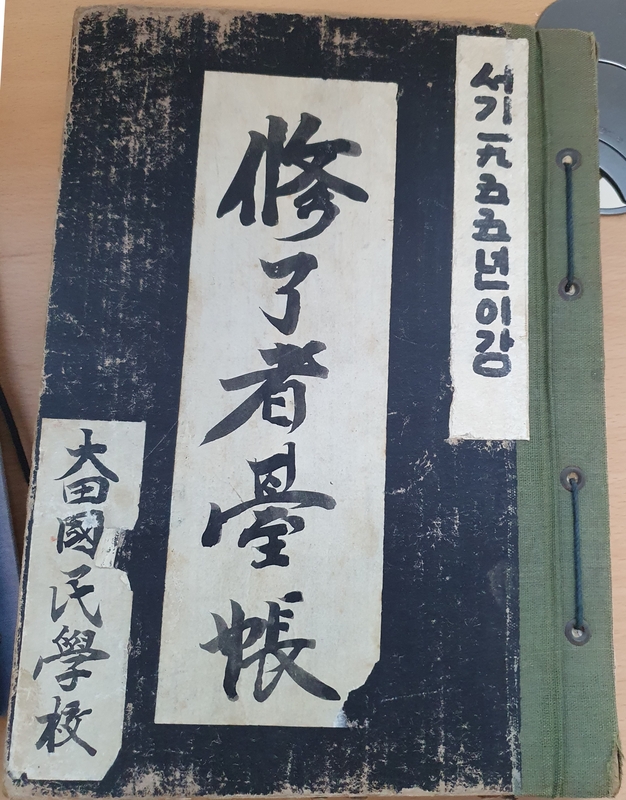 서기一九五五년이강
修了者臺帳
大田國民學校